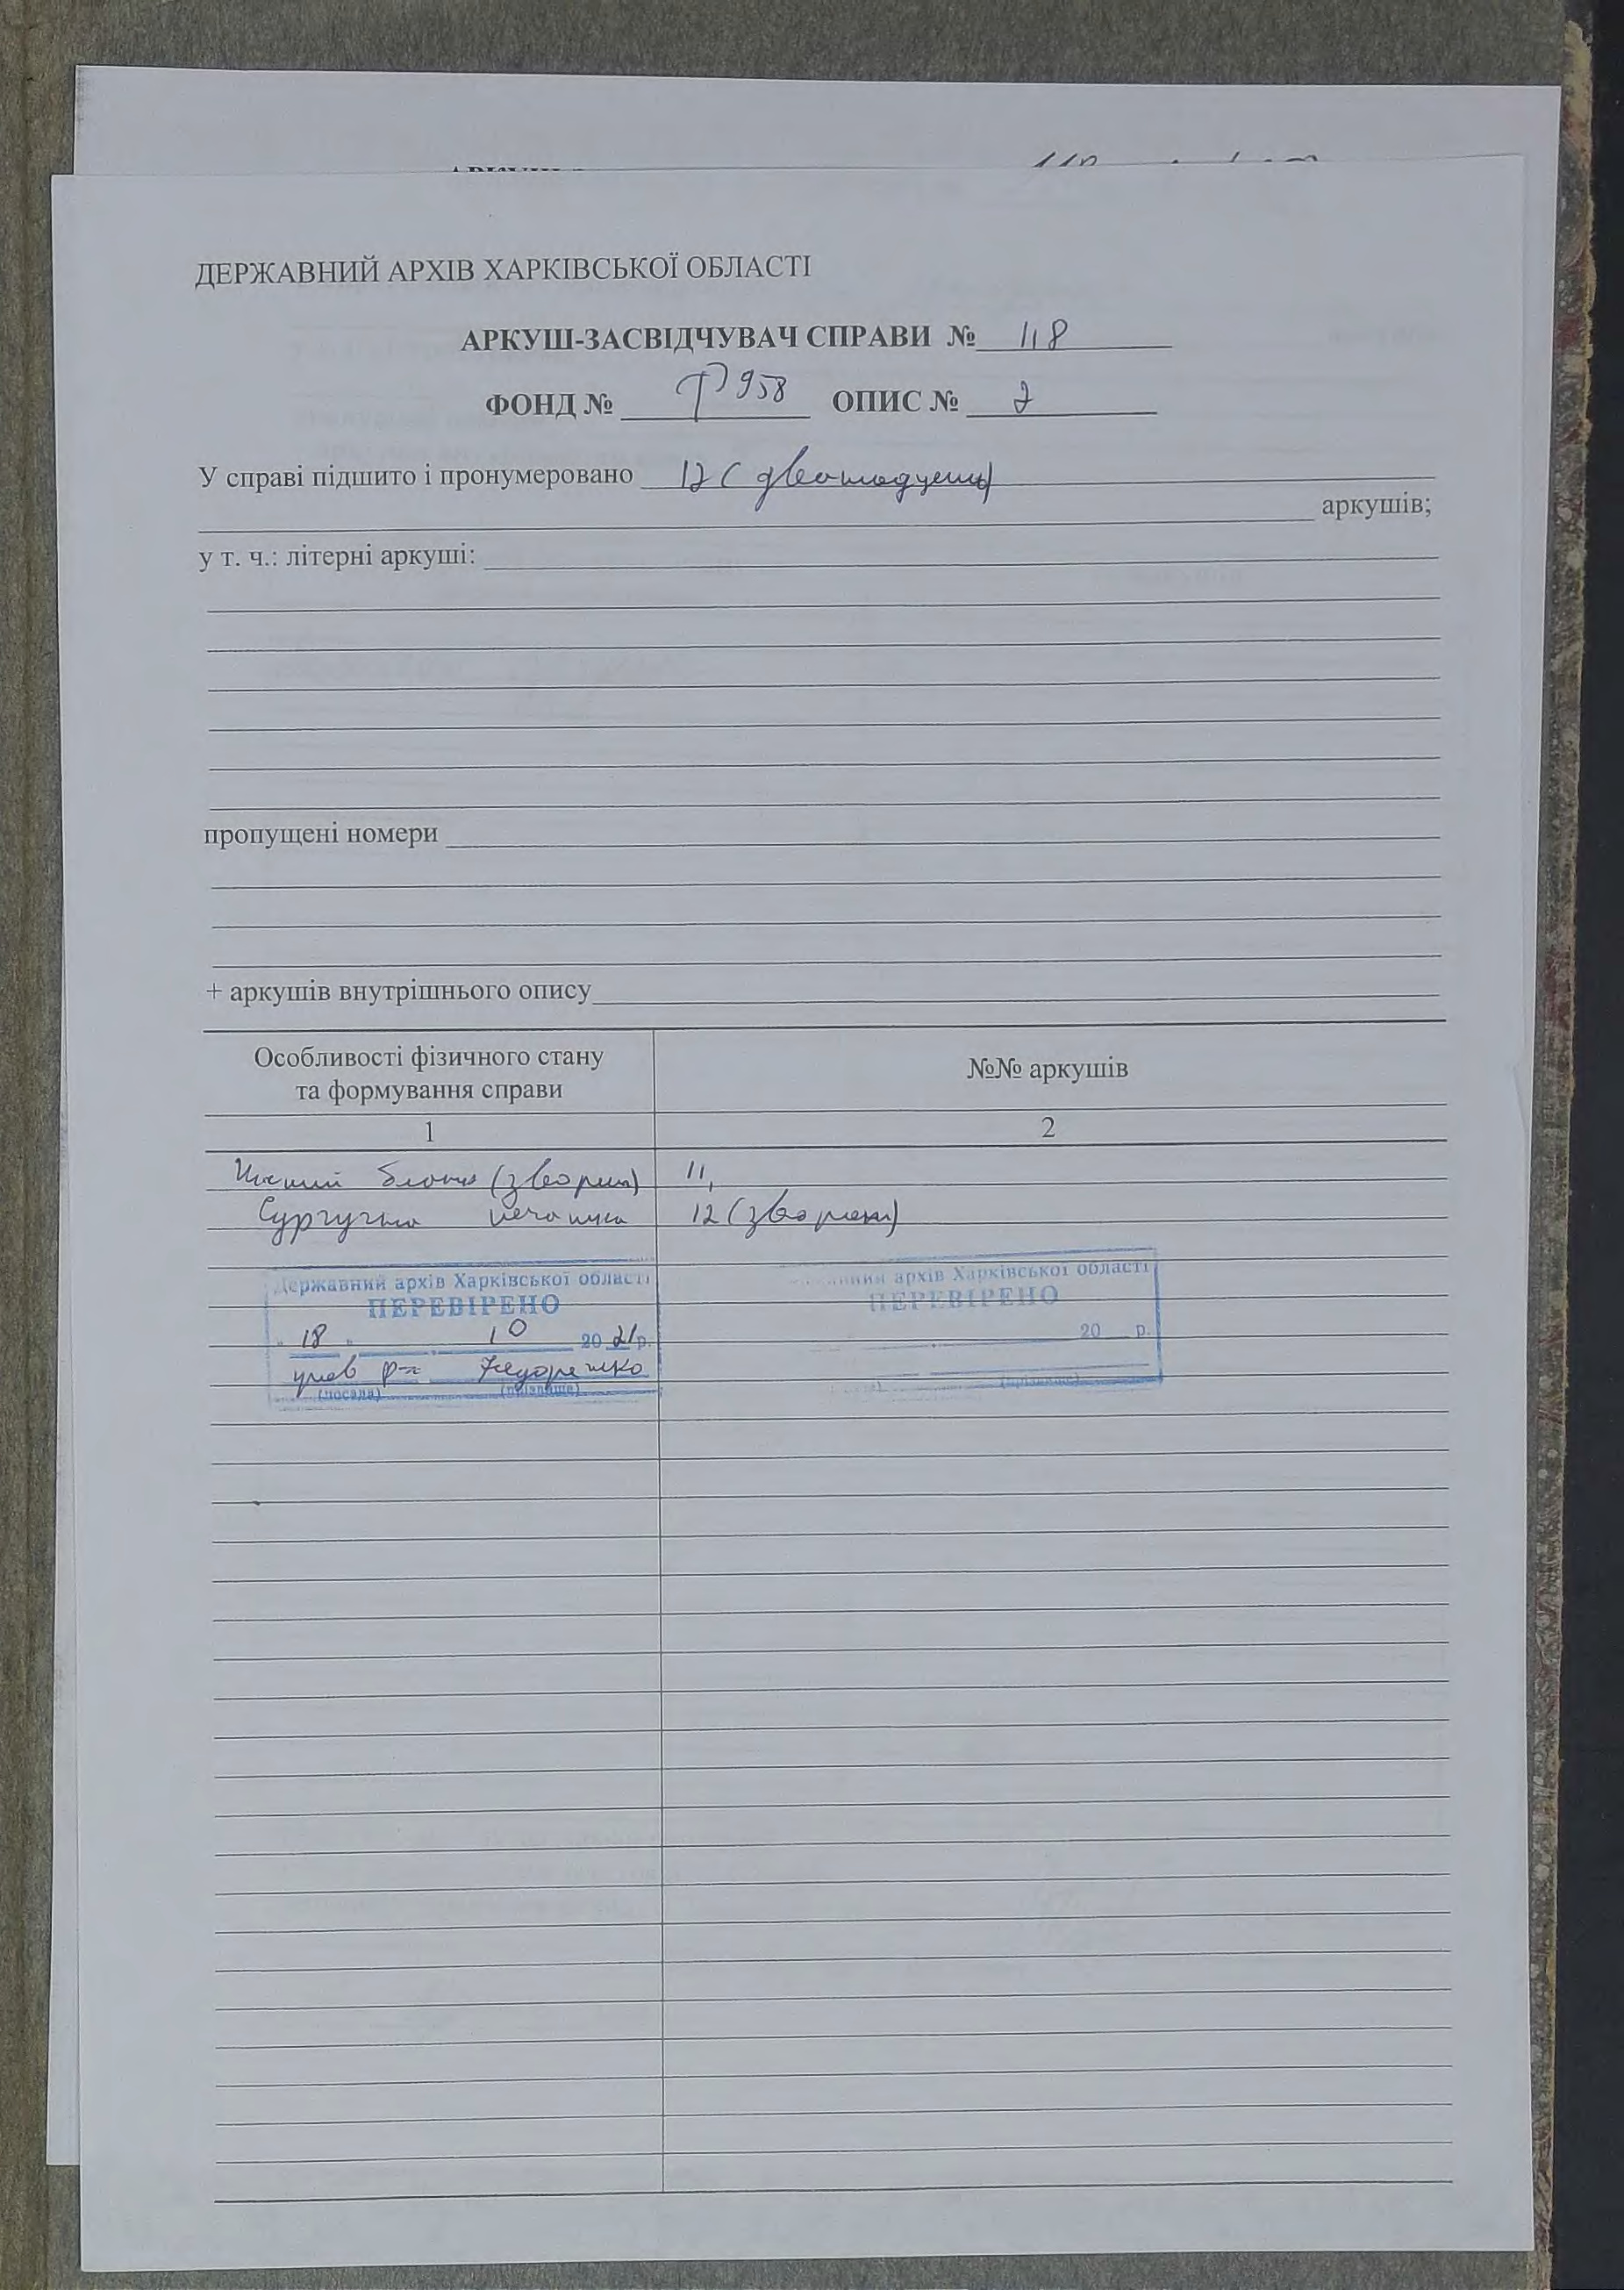 ДЕРЖАВНИЙ АРХІВ ХАРКІВСЬКОЇ ОБЛАСТІ
АРКУШ-ЗАСВІДЧУВАЧ СПРАВИ № 118
ФОНД № Ф 958 ОПИС № 2
У справі підшито і пронумеровано 12 (дванадцять)
аркушів;
у т. ч.: літерні аркуші:
пропущені номери
+ аркушів внутрішнього опису
Особливості фізичного стану та формування справи
№№ аркушів
1 2
Чистий бланк (зворот) 11,
Сургучна печатка 12 (зворот)
Державний архів Харківської області
ПЕРЕВІРЕНО
" 18 " 10 20 21 р.
Федоренко
(посада) (прізвище)
архів Харківської області
ПЕРЕВІРЕНО
20 р.
(прізвище)